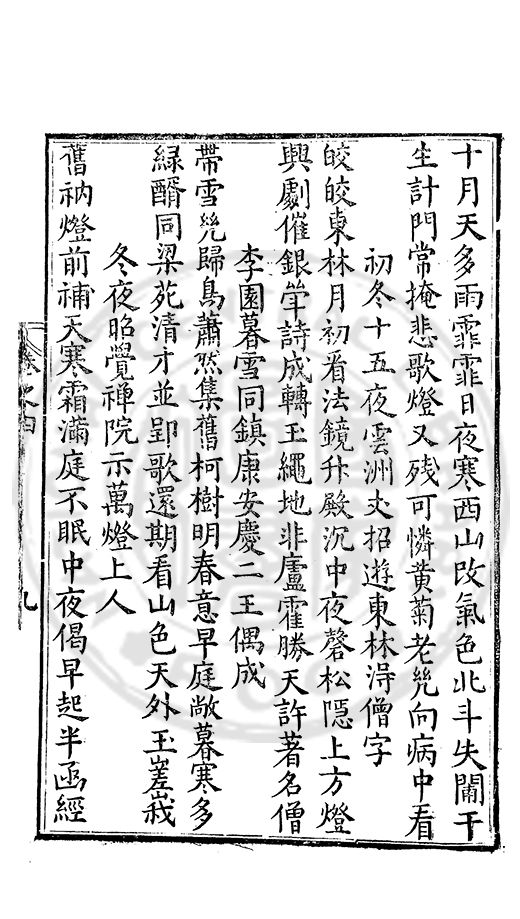 十月天多雨霏霏日夜寒西山改氣色北斗失闌干
生計門常掩悲歌燈又残可憐黄菊老㡬向病中看
初冬十五夜雲洲丈招遊東林淂僧字
皎皎東林月初看法鏡升殿沉中夜磬松隠上方燈
興劇催銀筆詩成轉玉繩地非廬霍勝天許著名僧
李園暮雪同鎮康安慶二王偶成
帶雪㡬歸鳥蕭然集舊柯樹明春意早庭敞暮寒多
緑醑同梁苑清才並郢歌還期看山色天外玉嵳峩
冬夜昭覺禅院示萬燈上人
舊衲燈前補天寒霜滿庭不眠中夜偈早起半函經
卷之四
九